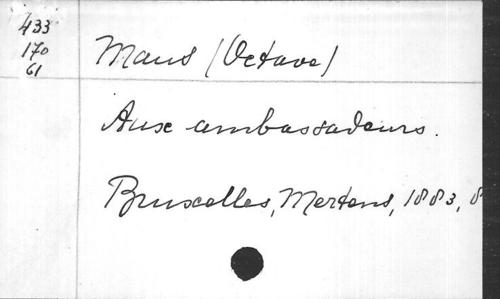 433
170
61
Maus (Octave)
Aux ambassadeurs.
Bruxelles, Mertens, 1883, 8